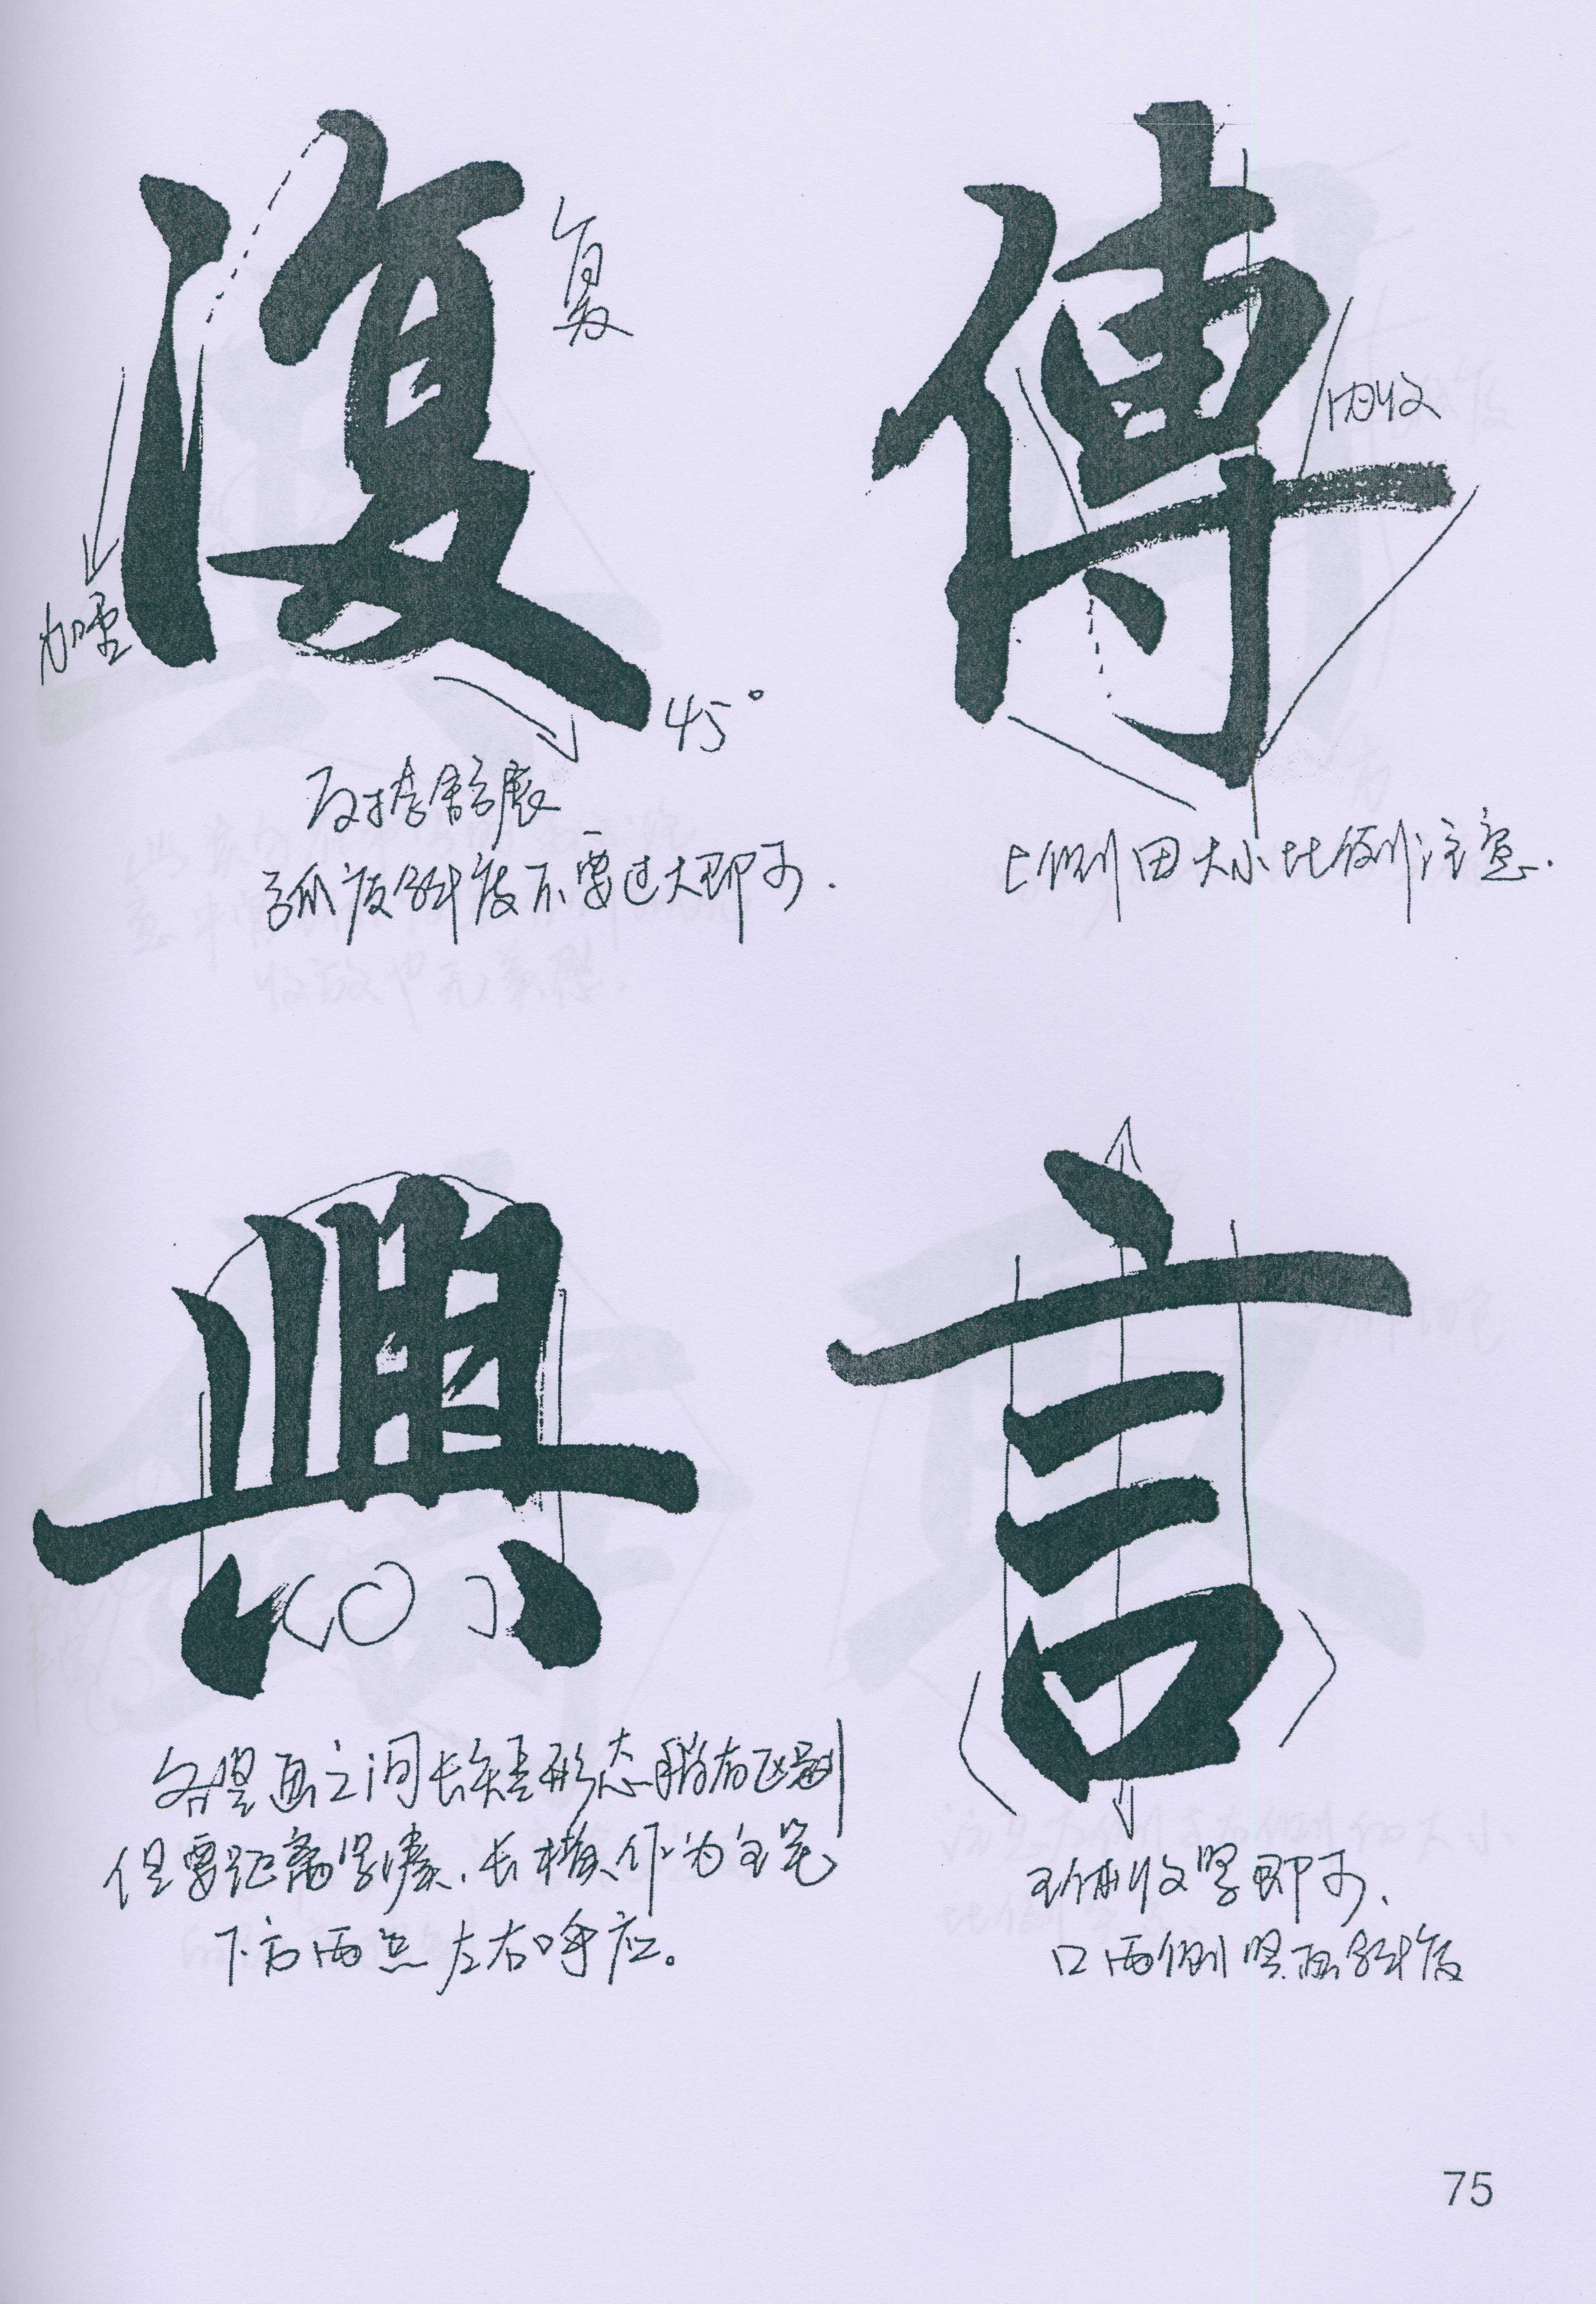 復
复
加重
45°
反捺舒展
弧度斜度不要过大即可.
傳
内收
上侧田大小比例注意.
興
各竖画之间长短形态稍有区别
但要距离紧凑.长横作为主笔
下方两点左右呼应。
言
收紧即可、
口两侧竖画斜度
75